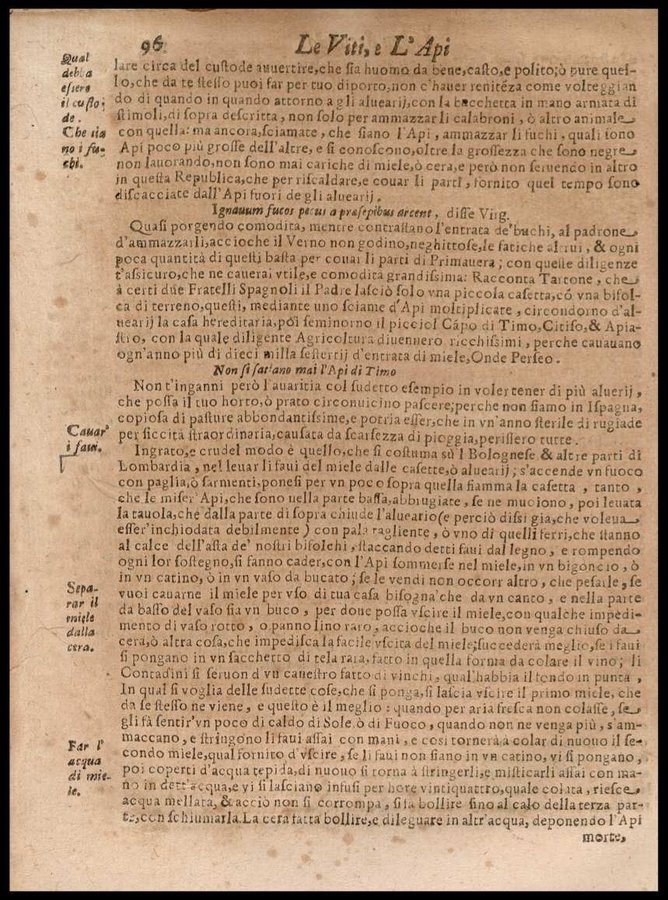 96
Le Viti, e L'Api
Qual
debba
essere
il custo-
de.
Che sia
no i fu-
chi.
lare circa del custode auuertire,che sia huomo da bene,casto,e polito;ò pure quel-
lo,che da te stesso puoi far per tuo diporto,non c'hauer reniteza come volteggian
do di quando in quando attorno a gli aluearij,con la bacchetta in mano armata di
stimoli,di sopra descritta, non solo per ammazzar li calabroni, ò altro animale
con quella: ma ancora,sciamate, che siano l'Api, ammazzar li fuchi, quali sono
Api poco più grosse dell'altre, e si conoscono,oltre la grossezza che sono negre
non lauorando,non sono mai cariche di miele,ò cera,e però non seruendo in altro
in questa Republica,che per riscaldare,e couar li parti, fornito quel tempo sono
discacciate dall'Api fuori de gli aluearij.
Ignauum fucos pecus a præsepibus arcent, disse Virg.
Quasi porgendo comodità, mentre contrastano l'entrata de'buchi, al padrone
d'ammazzarli,accioche il Verno non godino,neghittose,le fatiche altrui, & ogni
poca quantità di questi basta per couar li parti di Primauera; con quelle diligenze
t'assicuro,che ne cauerai vtile,e comodità grandissima: Racconta Tartone, che
à certi due Fratelli Spagnoli il Padre lasciò solo vna piccola casetta,có vna bifol-
ca di terreno,questi, mediante vno sciame d'Api moltiplicate, circondorno d'al-
uearij la casa hereditaria,poi seminorno il picciol Cápo di Timo,Citiso,& Apia-
stro, con la quale diligente Agricoltura diuennero ricchissimi, perche cauauano
ogn'anno più di dieci milla sestertij d'entrata di miele,Onde Perseo.
Non si satiano mai l'Api di Timo
Non t'inganni però l'auaritia col sudetto esempio in voler tener di più aluerij,
che possa il tuo horto,ò prato circonuicino pascere;perche non siamo in Ispagna,
copiosa di pasture abbondantissime,e potria esser,che in vn'anno sterile di rugiade
per siccità straordinaria,causata da scarsezza di pioggia,perissero tutte.
Cauar
i faui.
Ingrato,e crudel modo è quello,che si costuma sù'l Bolognese & altre parti di
Lombardia, nel leuar li faui del miele dalle casette,ò aluearij; s'accende vn fuoco
con paglia,ò sarmenti,ponesi per vn poco sopra quella fiamma la casetta, tanto,
che le miser'Api,che sono nella parte bassa,abbrugiate, se ne muciono, poi leuata
la tauola,che dalla parte di sopra chiude l'alueario(e perciò dissi gia,che voleua
esser'inchiodata debilmente) con pala tagliente, ò vno di quelli ferri,che stanno
al calce dell'asta de' nostri bifolchi,staccando detti faui dal legno, e rompendo
ogni lor sostegno,si fanno cader,con l'Api sommerse nel miele,in vn bigoncio, ò
in vn catino, ò in vn vaso da bucato; se le vendi non occorr altro, che pesarle, se
Sepa-
rar il
miele
dalla
cera.
vuoi cauarne il miele per vso di tua casa bisogna'che da vn canto, e nella parte
da basso del vaso sia vn buco, per doue possa vscire il miele,con qualche impedi-
mento di vaso rotto, o panno lino raro, accioche il buco non venga chiuso da
cera,ò altra cosa,che impedisca la facile vscita del miele;succederà meglio,se i faui
si pongano in vn sacchetto di tela rara,fatto in quella forma da colare il vino; li
Contadini si seruon d'vn canestro fatto di vinchi, qual'habbia il fondo in punta,
In qual si voglia delle sudette cose,che si ponga,si lascia vscire il primo miele, che
da se stesso ne viene, e questo è il meglio: quando per aria fresca non colasse, se
gli fà sentir'vn poco di caldo di Sole,ò di Fuoco, quando non ne venga più, s'am-
maccano, e stringono li faui assai con mani, e così tornerà à colar di nuouo il se-
Far l'
acqua
di mie-
le.
condo miele,qual fornito d'vscire, se li faui non siano in vn catino, vi si pongano,
poi coperti d'acqua tepida,di nuouo si torna à stringerli,e misticarli assai con ma-
no in dett'acqua,e vi si lasciano infusi per hore vintiquattro,quale colata, riesce
acqua mellata, & acciò non si corrompa, si fà bollire sino al calo della terza par-
te,con schiumarla.La cera fatta bollire,e dileguare in altr'acqua, deponendo l'Api
morte,